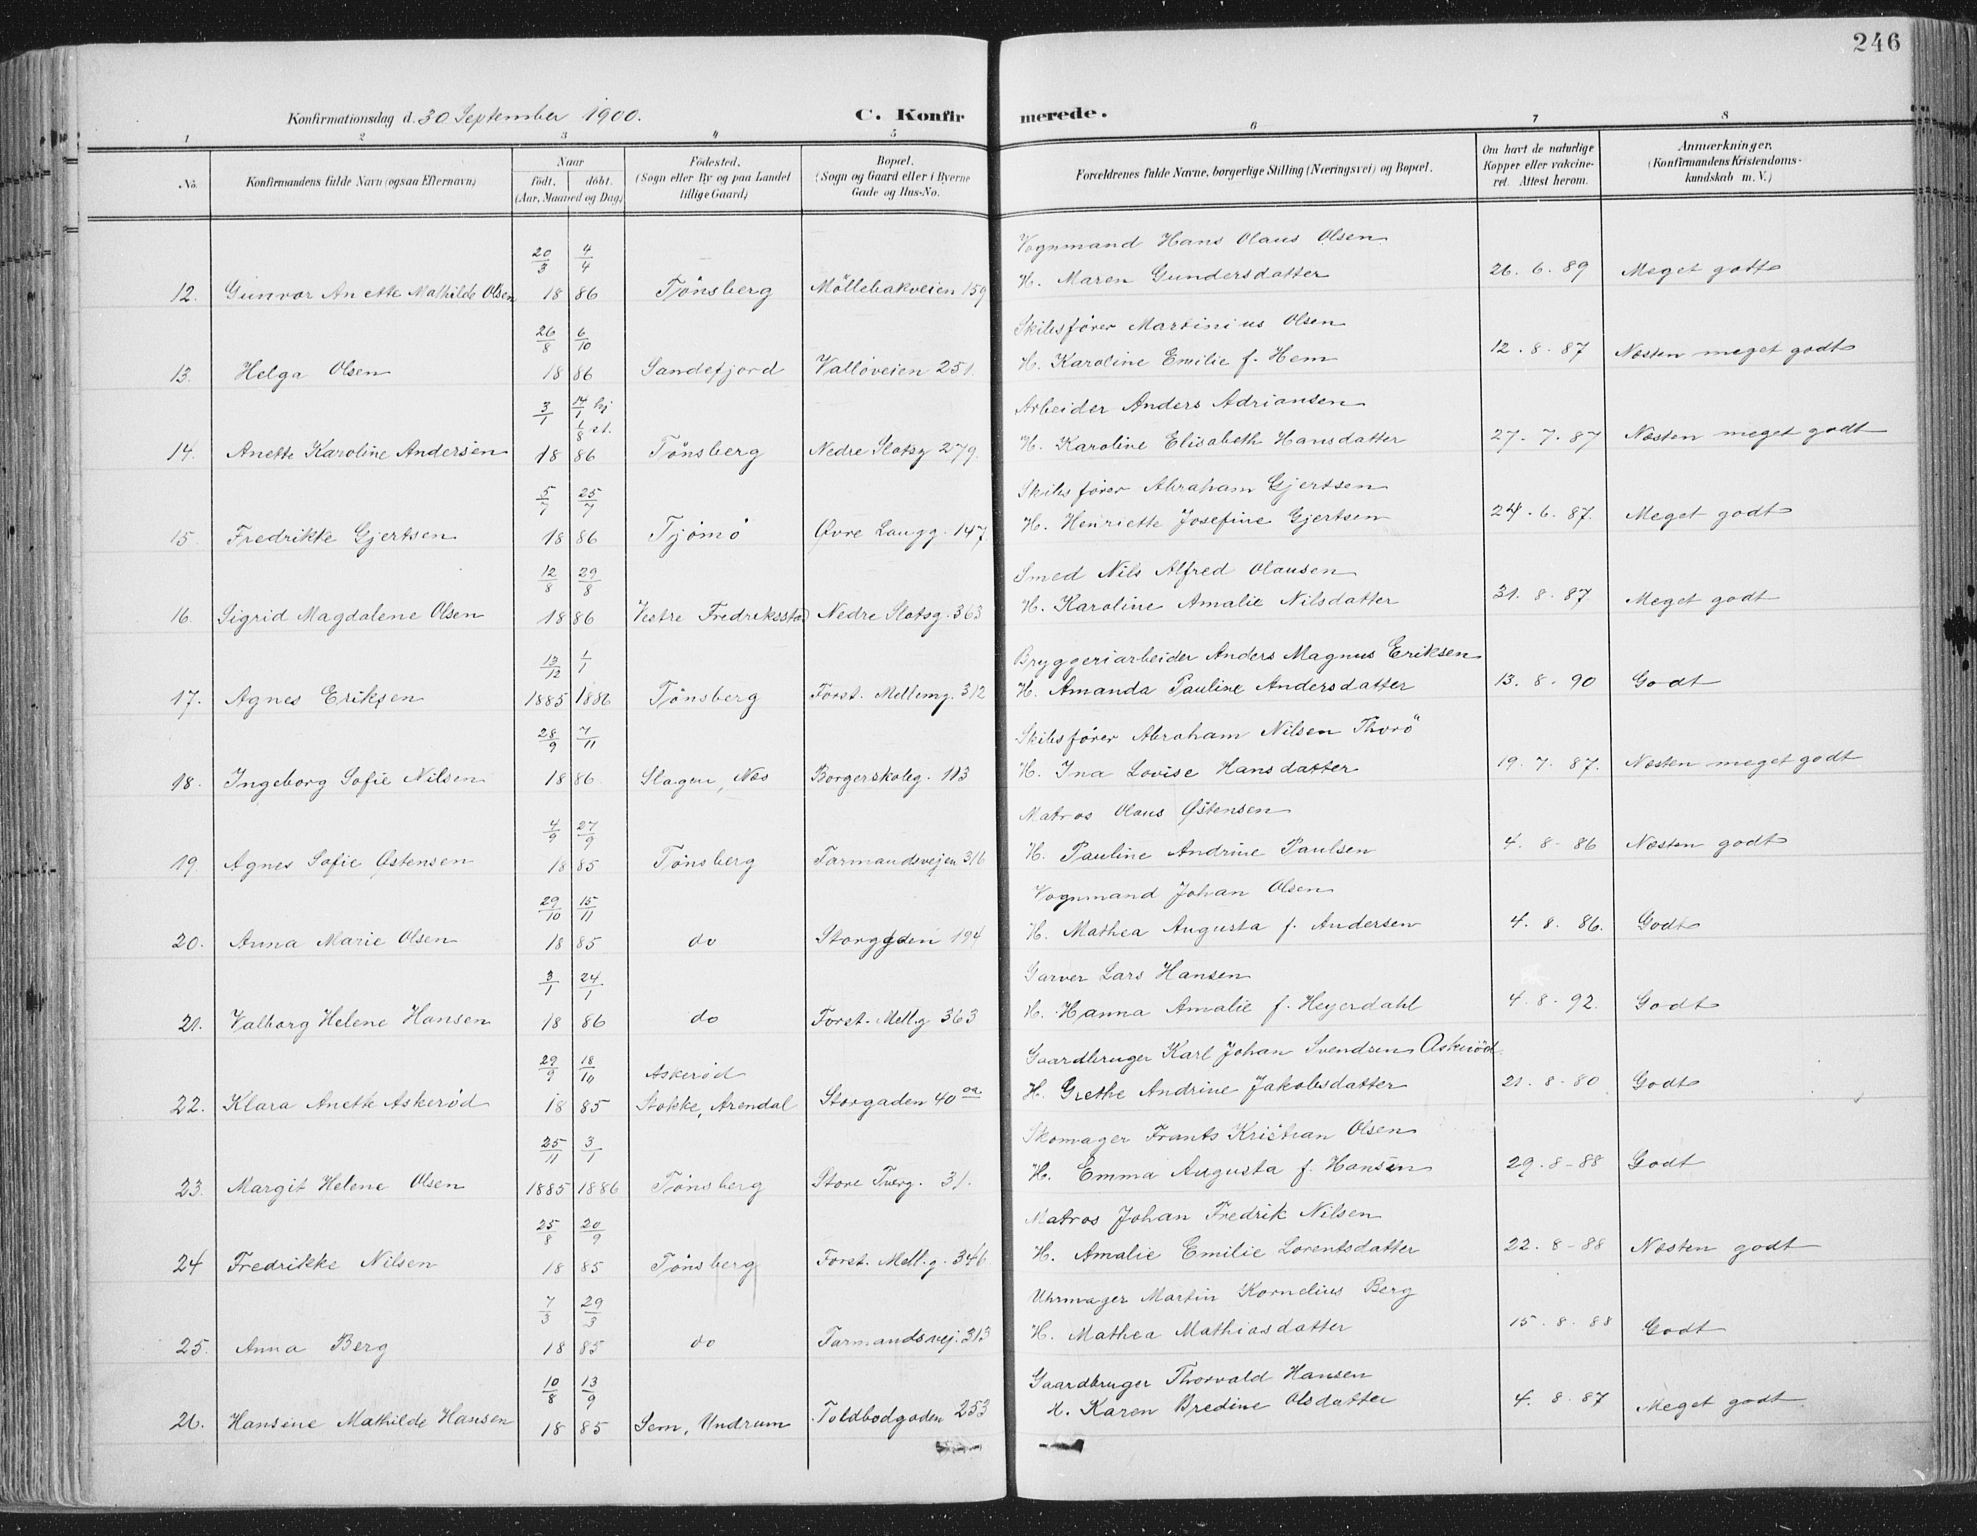 246
Konfirmationsdag d. 30 September 1900. C. Konfirmerede.
1 2 3 4 5 6 7 8
No. Konfirmandens fulde Navn (ogsaa Efternavn) Naar født, døbt. (Aar, Maaned og Dag) Fødested. (Sogn eller By og paa Landet tillige Gaard) Bopæl. (Sogn og Gaard eller i Byerne Gade og Hus-No. Forældrenes fulde Navne, borgerlige Stilling (Næringsvei) og Bopæl. Om havt de naturlige Kopper eller vakcineret. Attest herom. Anmærkninger. (Konfirmandens Kristendomskundskab m. V.)
20/3 4/4 Vognmand Hans Olaus Olsen
12. Gunvor Anette Mathilde Olsen 18 86 Tønsberg Möllebakveien 159 H. Maren Gundersdatter 26. 6. 89 Meget godt
26/8 6/10 Skibsfører Martinius Olsen
13. Helga Olsen 18 86 Sandefjord Valløveien 251. H. Karoline Emilie f. Hem 12. 8. 87 Næsten meget godt
3/1 14/1 hj 1/8 st. Arbeider Anders Adriansen
14. Anette Karoline Andersen 18 86 Tønsberg Nedre Slotsg 279. H. Karoline Elisabeth Hansdatter 27. 7. 87 Næsten meget godt
5/7 25/7 Skibsfører Abraham Gjertsen
15. Fredrikke Gjertsen 18 86 Tjømø Øvre Langg. 147 H. Henriette Josefine Gjertsen 24. 6. 87. Meget godt
12/8 29/8 Smed Nils Alfred Olausen
16. Sigrid Magdalene Olsen 18 86 Vestre Fredriksstad Nedre Slotsg. 363 H. Karoline Amalie Nilsdatter 31. 8. 87 Meget godt
13/12 1/1 Bryggeriarbeider Anders Magnus Eriksen
17. Agnes Eriksen 1885 1886 Tønsberg Forst. Mellemg. 312 H. Amanda Pauline Andersdatter 13. 8. 90 Godt
28/9 7/11 Skibsfører Abraham Nilsen Thorø
18. Ingeborg Sofie Nilsen 18 86 Slagen, Næs Borgerskoleg. 113 H. Ina Lovise Hansdatter 19. 7. 87. Næsten meget godt
4/9 27/9 Matros Olaus Østensen
19. Agnes Sofie Østensen 18 85 Tønsberg Farmandsvejen 316 H. Pauline Andrine Paulsen 4. 8. 86 Næsten godt
29/10 15/11 Vognmand Johan Olsen
20. Anna Marie Olsen 18 85 do Storgaden 194 H. Mathea Augusta f. Andersen 4. 8. 86. Godt
3/1 24/1 Garver Lars Hansen
21. Valborg Helene Hansen 18 86 do Forst. Mell.g 363 H. Hanna Amalie f. Heyerdahl 4. 8. 92. Godt
29/9 18/10 Askerød Gaardbruger Karl Johan Svendsen Askerød.
22. Klara Anette Askerød 18 85 Stokke, Arendal Storgaden 40 H. Grethe Andrine Jakobsdatter 21. 8. 80 Godt
25/11 3/1 Skomager Frants Kristian Olsen
23. Margit Helene Olsen 1885 1886 Tønsberg Store Tverg. 31. H. Emma Augusta f. Hansen 29. 8-88 Godt
25/8 20/9 Matros Johan Fredrik Nilsen
24 Fredrikke Nilsen 18 85 Tønsberg Forst. Mell.g. 346 H. Amalie Emilie Lorentsdatter 22. 8-88 Næsten godt
7/3 29/3 Uhrmager Martin Kornelius Berg
25. Anna Berg 18 85 do Farmandsvej. 313 H. Mathea Mathiasdatter 15. 8. 88 Godt
10/8 13/9 Gaardbruger Thorvald Hansen
26. Hansine Mathilde Hansen 18 85 Sem, Undrum Toldbodgaden 253 H. Karen Bredine Olsdatter 4. 8. 87 Meget godt.